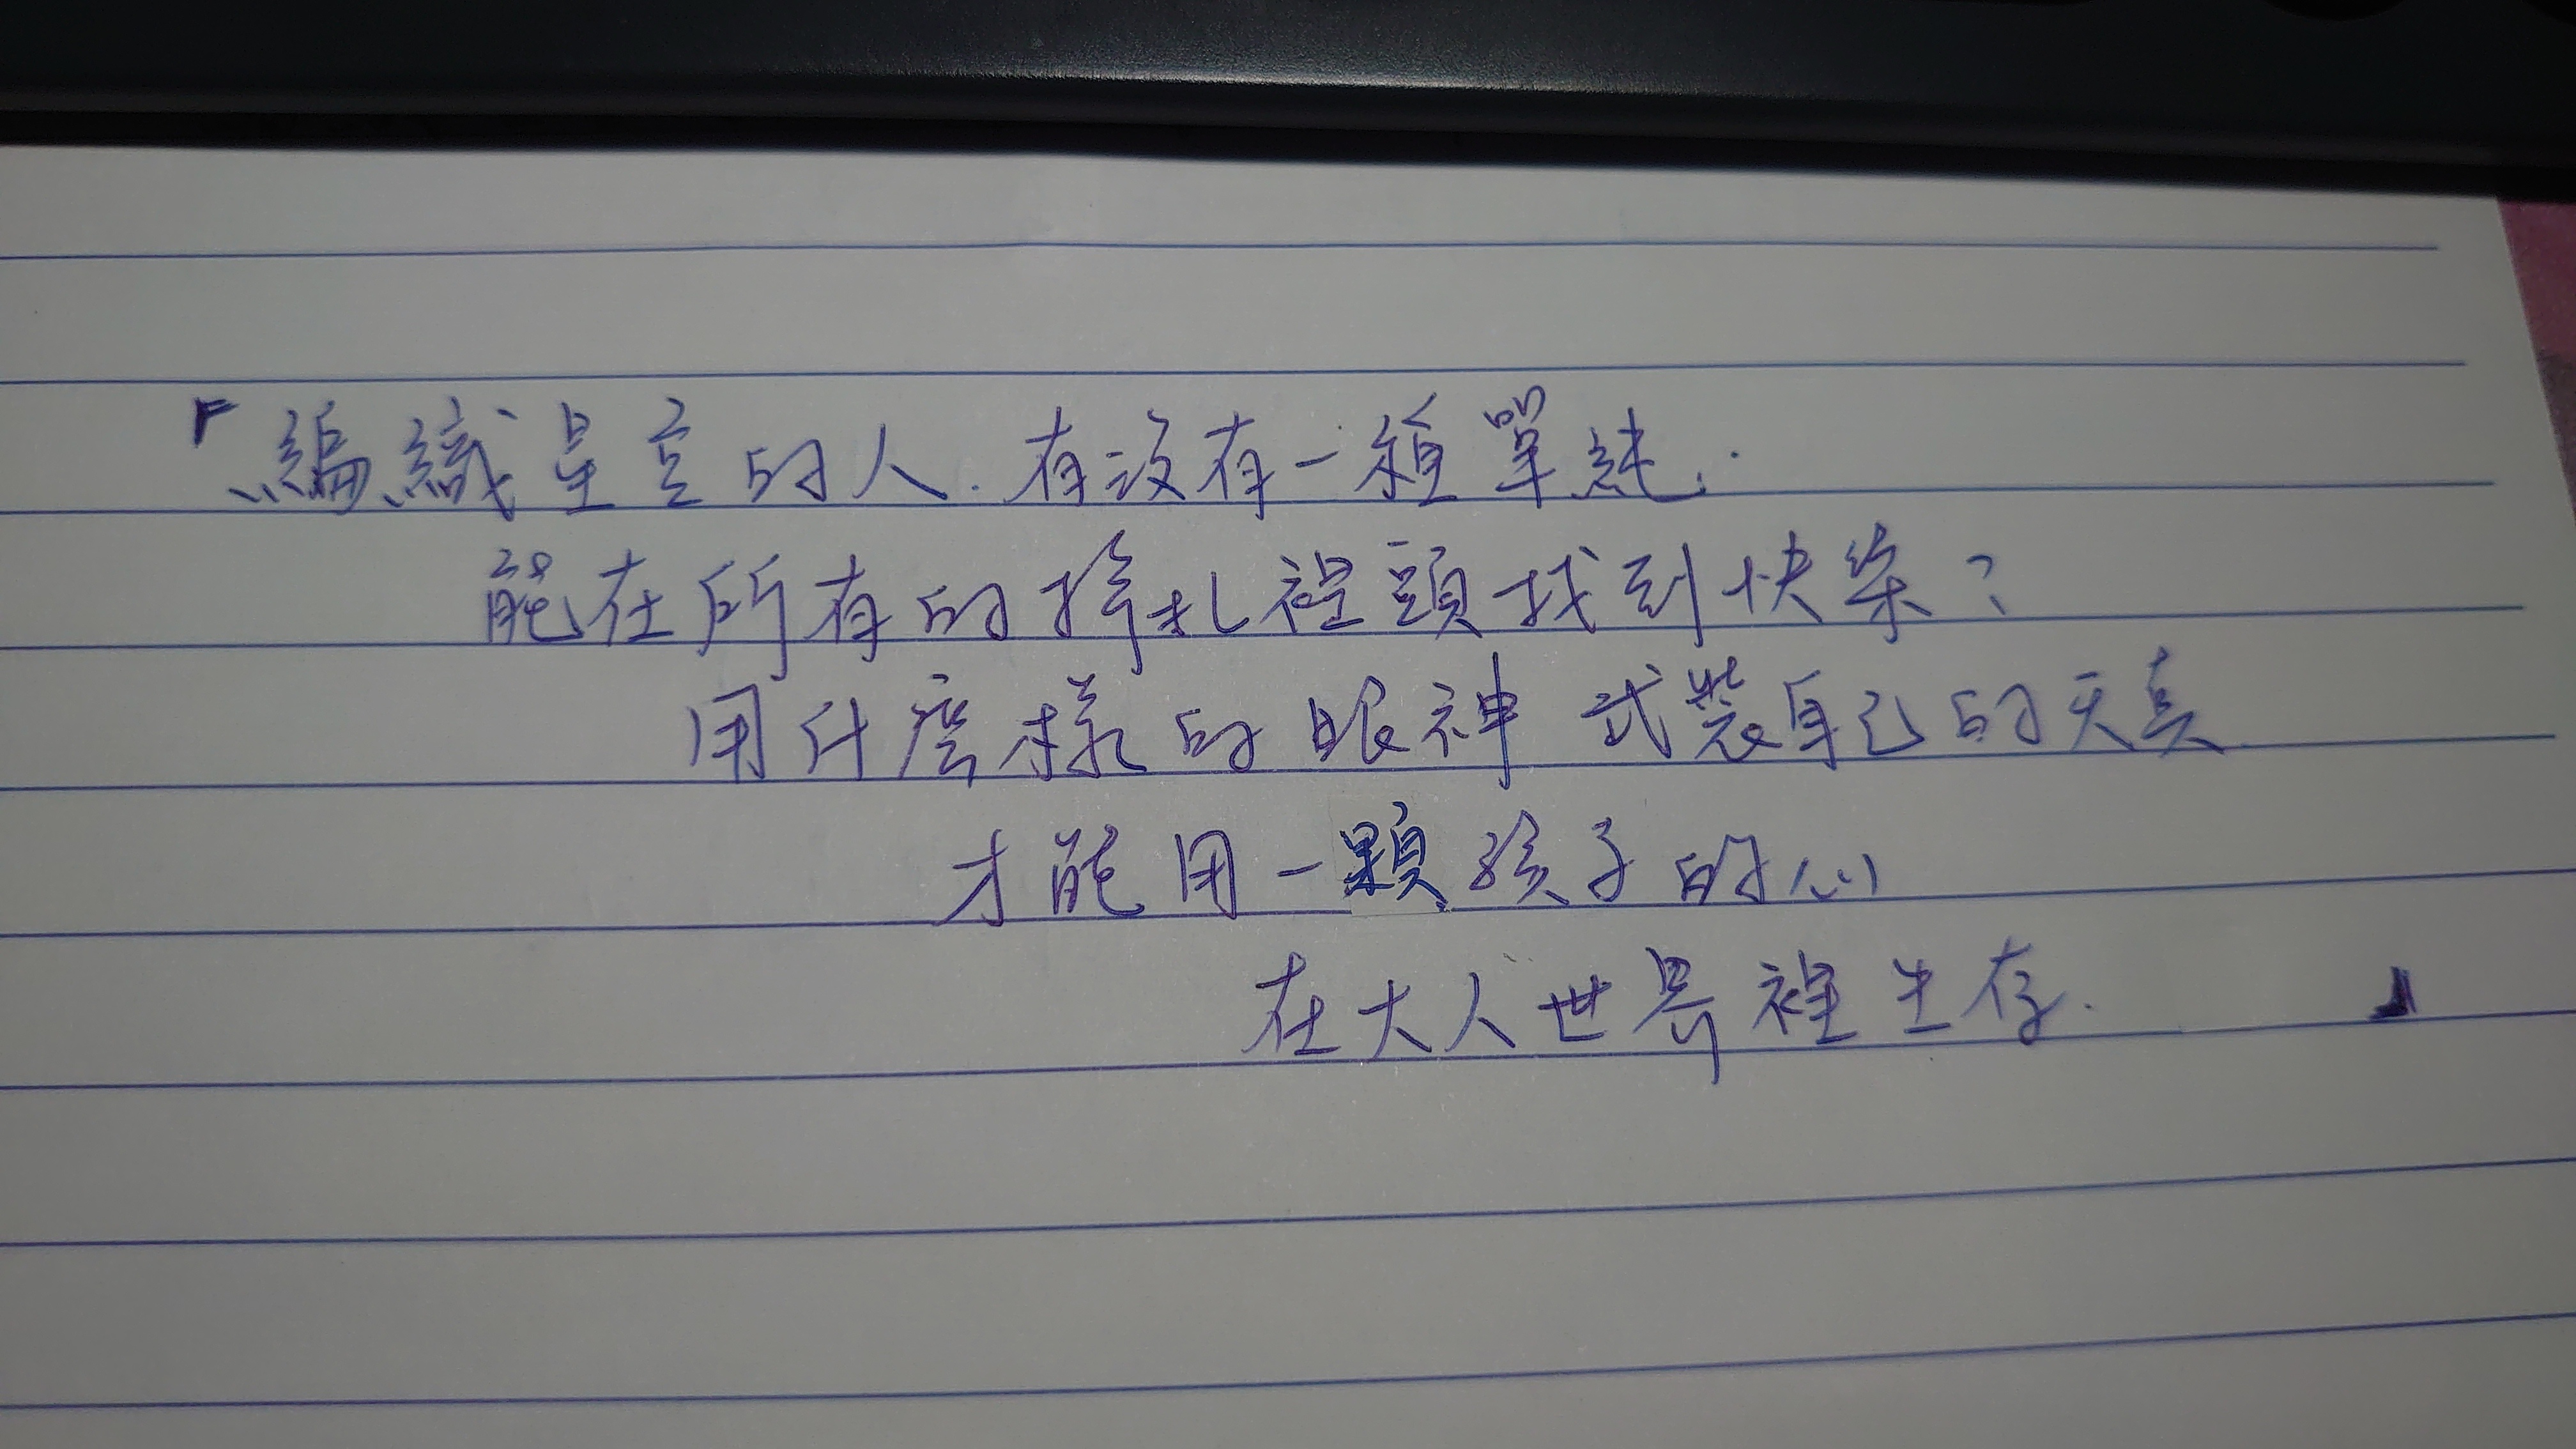 「編織星空的人.有沒有一種單純.
能在所有的掙扎裡頭找到快樂？
用什麼樣的眼神 武裝自己的天真
才能用一顆孩子的心
在大人世界裡生存.」